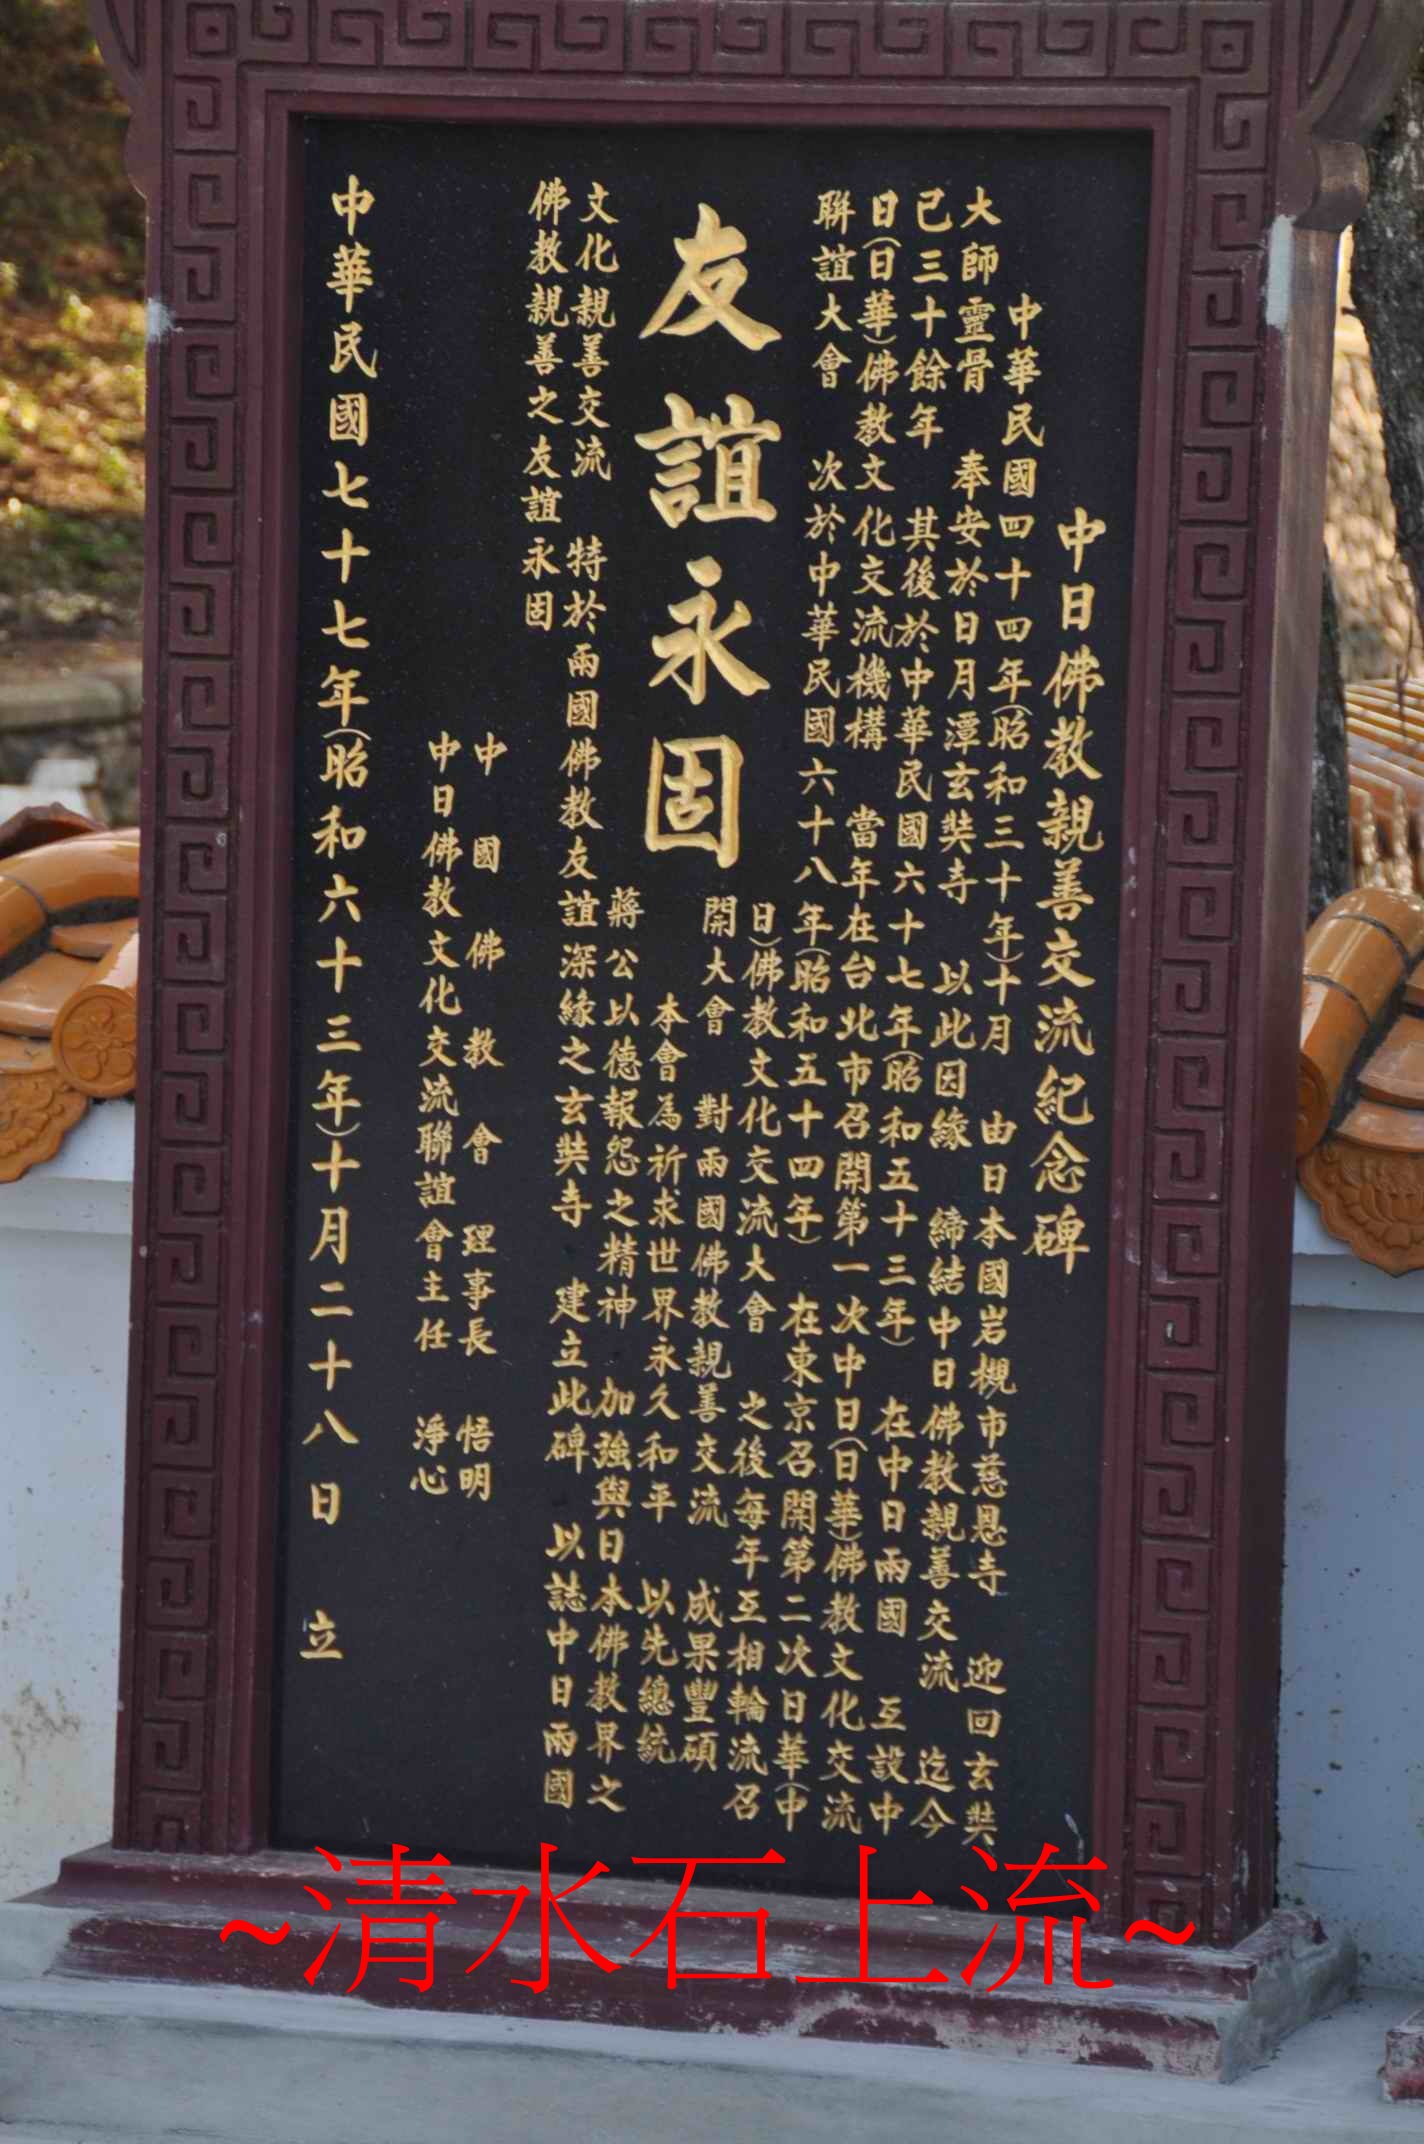 中日佛教親善交流紀念碑
中華民國四十四年(昭和三十年)十月　由日本國岩槻市慈恩寺　迎回玄奘
大師靈骨　奉安於日月潭玄奘寺　以此因緣　締結中日佛教親善交流　迄今
已三十餘年　其後於中華民國六十七年(昭和五十三年)　在中日兩國　互設中
日(日華)佛教文化交流機構　當年在台北市召開第一次中日(日華)佛教文化交流
聯誼大會　次於中華民國六十八年(昭和五十四年)　在東京召開第二次日華(中
日)佛教文化交流大會　之後每年互相輪流召
開大會　對兩國佛教親善交流　成果豐碩
友誼永固
本會為祈求世界永久和平　以先總統
蔣公以德報怨之精神　加強與日本佛教界之
文化親善交流　特於兩國佛教友誼深緣之玄奘寺　建立此碑　以誌中日兩國
佛教親善之友誼永固
中國佛教會理事長　悟明
中日佛教文化交流聯誼會主任　淨心
中華民國七十七年(昭和六十三年)十月二十八日　立
~清水石上流~